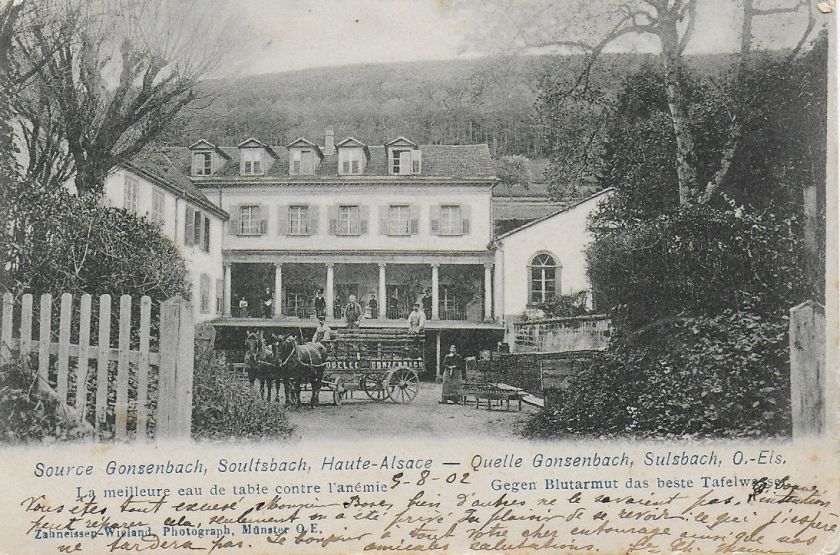 QUELLE GONZENBACH
Source Gonsenbach, Soultsbach, Haute-Alsace — Quelle Gonsenbach, Sulsbach, O.-Els.
La meilleure eau de table contre l'anémie 9-8-02 Gegen Blutarmut das beste Tafelwasser
Vous êtes tout excusé, Monsieur, bien d'autres ne le savaient pas.
peut réparer cela, seulement on a été privé du plaisir de se revoir, ce que j'espère
Zahneissen-Wieland, Photograph, Münster O.E.
ne tardera pas. Le bonjour à tout votre cher entourage ainsi que nos
amicales salutations.